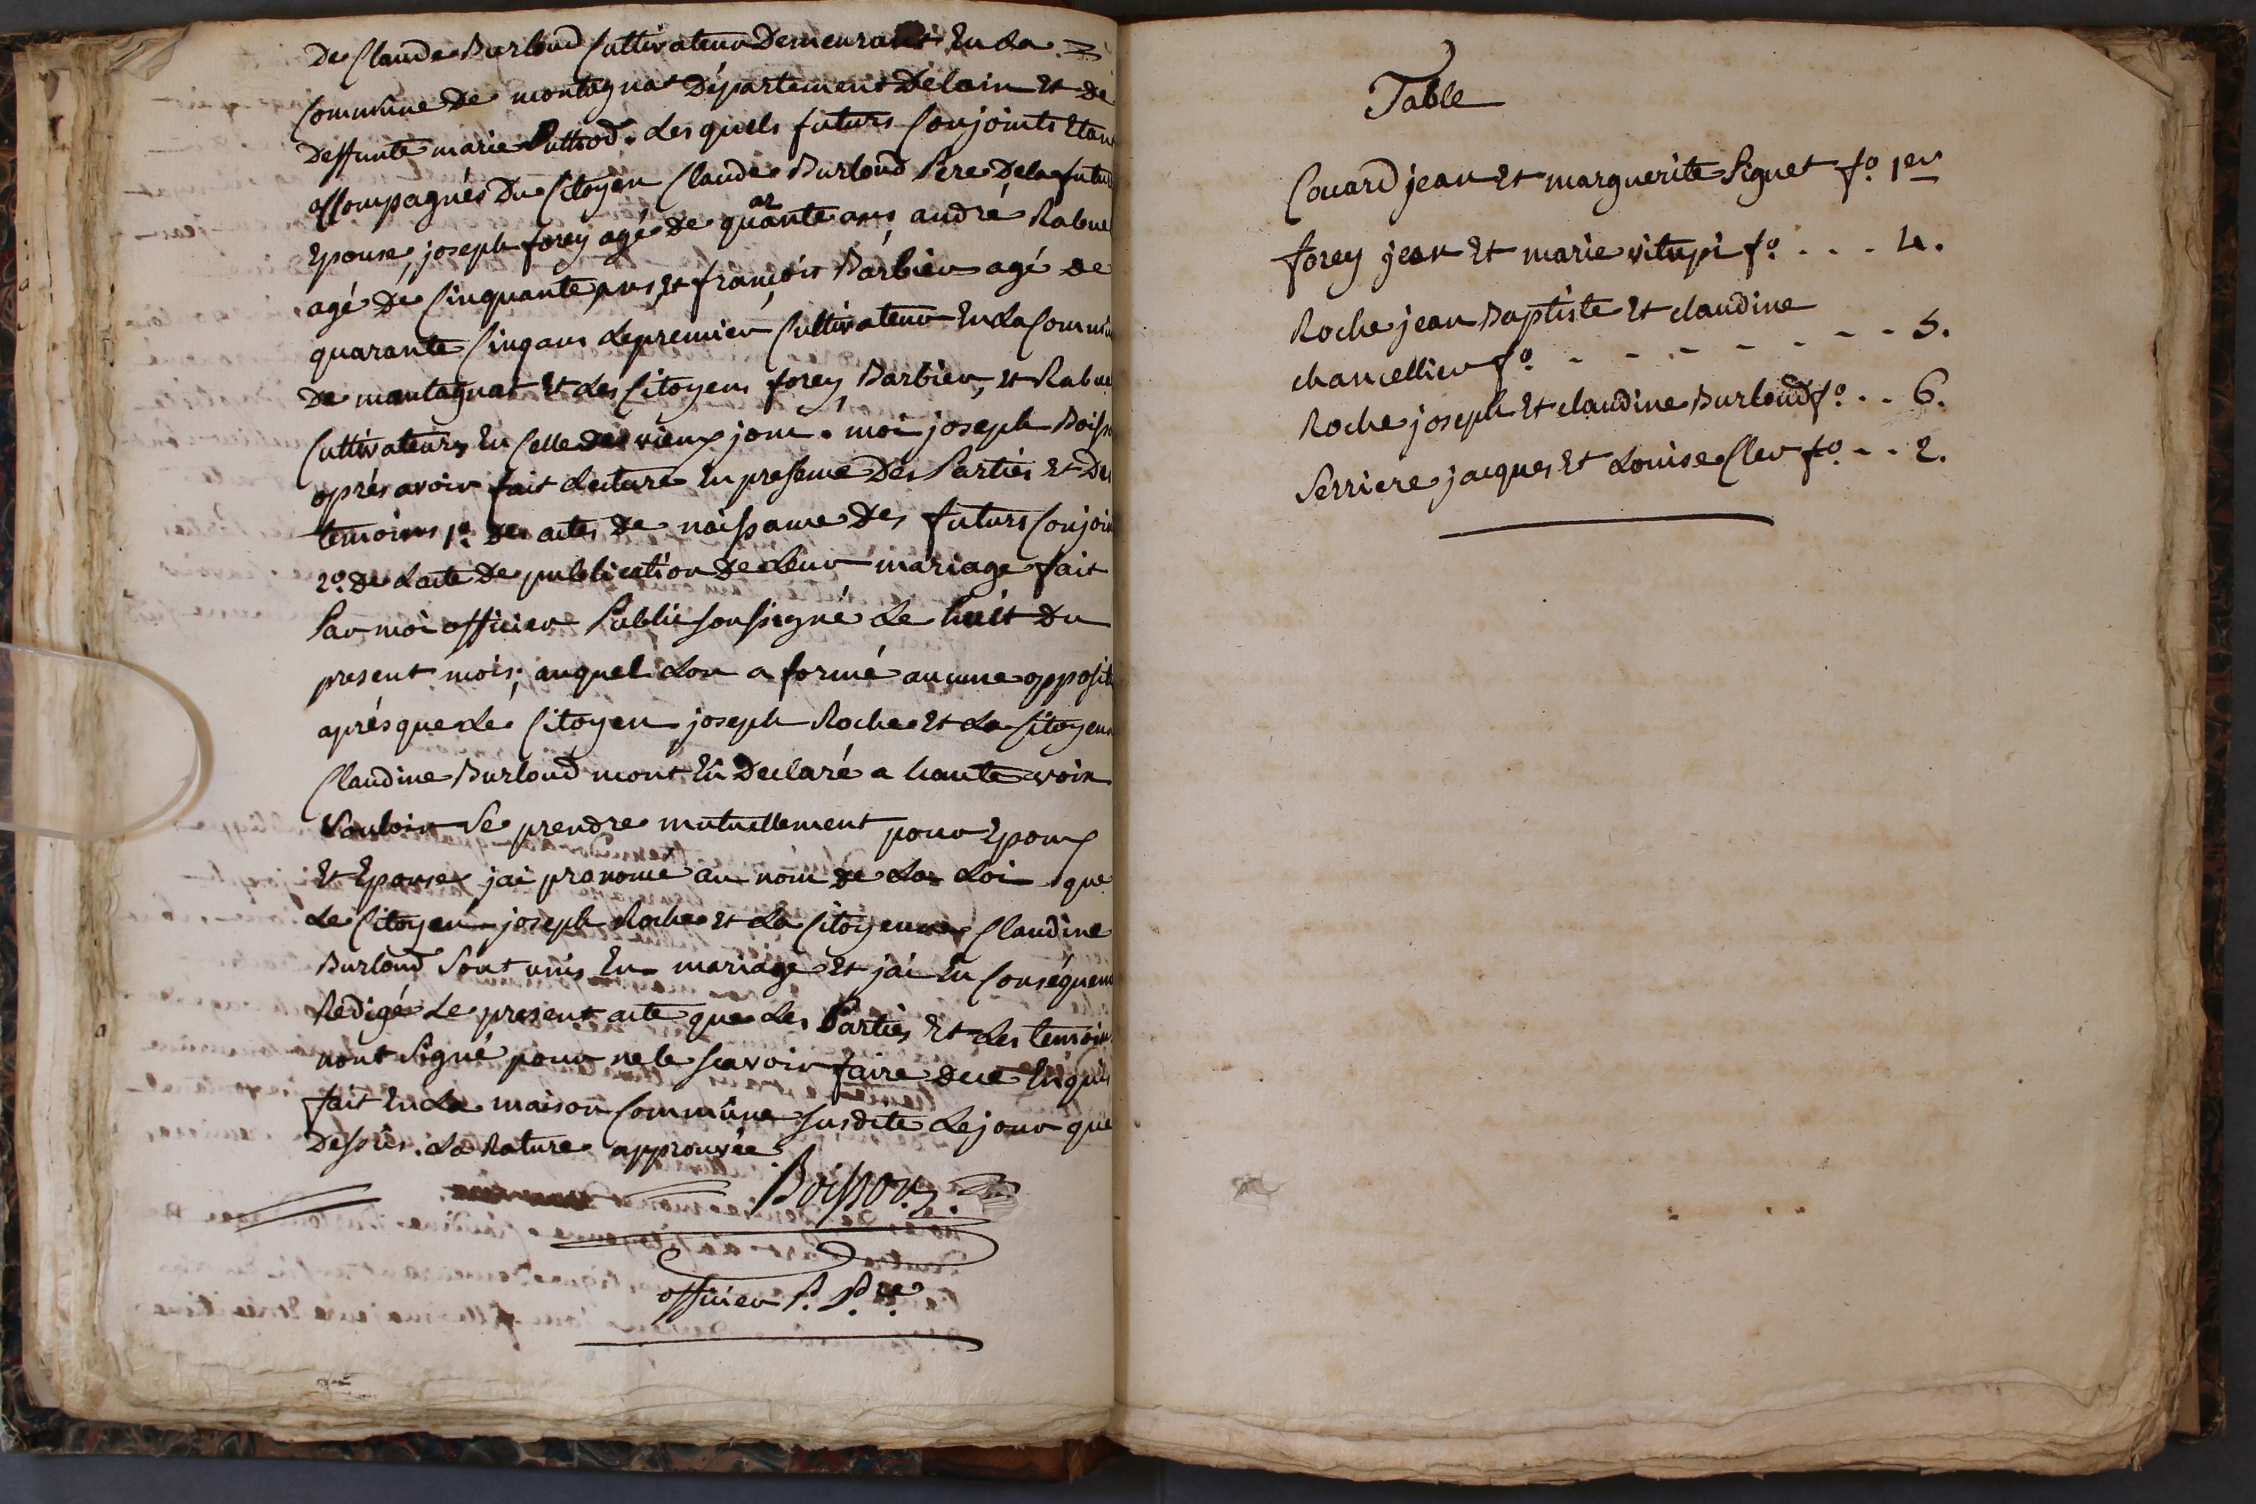 De Claude Burloud Cultivateur Demeurant En La
Commune De montagnat Département Delain Et De
Deffunte marie Puthod. Les quels futurs Conjoints Etan
accompagnés Du Citoyen Claude Burloud Pere Dela futu
Epouse, joseph forey agé De quarante ans, andré Rabue
agé De Cinquante ans, Et françois Barbier agé De
quarante Cinq ans Le premier Cultivateur En La Commu
De montagnat Et Les Citoyens forey, Barbier, Et Rabue
Cultivateurs En Celle De vieux jour. moi joseph Boiss
aprés avoir fait Lecture En presence Des Parties Et Des
temoins 1o. Des actes De naissance Des futurs Conjoin
2o. De Lacte De publication De Leur mariage fait
Par moi officier Public soussigné Le huit Du
present mois, auquel Lon a formé aucune opposit
aprés que Le Citoyen joseph Roche Et La Citoyen
Claudine Burloud mont Eu Declaré a haute voix
Vouloir Se prendre mutuellement pour Epoux
Et Epouse, jai prononcé au nom De La Loi que
Le Citoyen joseph Roche Et La Citoyenne Claudine
Burloud Sont unis En mariage Et jai En Conséquen
Redigé Le present acte que Les Parties Et Les temoin
nont Signé pour ne le Scavoir faire De ce Enquis
fait En La maison Commune Susdite Le jour que
Dessus. La Rature approuvée.
Boisson.
officier P. P.re
Table
Couard jean Et marguerite Signet fo. 1er
forey jean Et marie vitupi fo. . . . 4.
Roche jean Baptiste Et claudine
chancellier fo. - - - - - - - - 5.
Roche joseph Et claudine Burloud fo. . . 6.
Serriere jacques Et Louise Cler fo. - - 2.